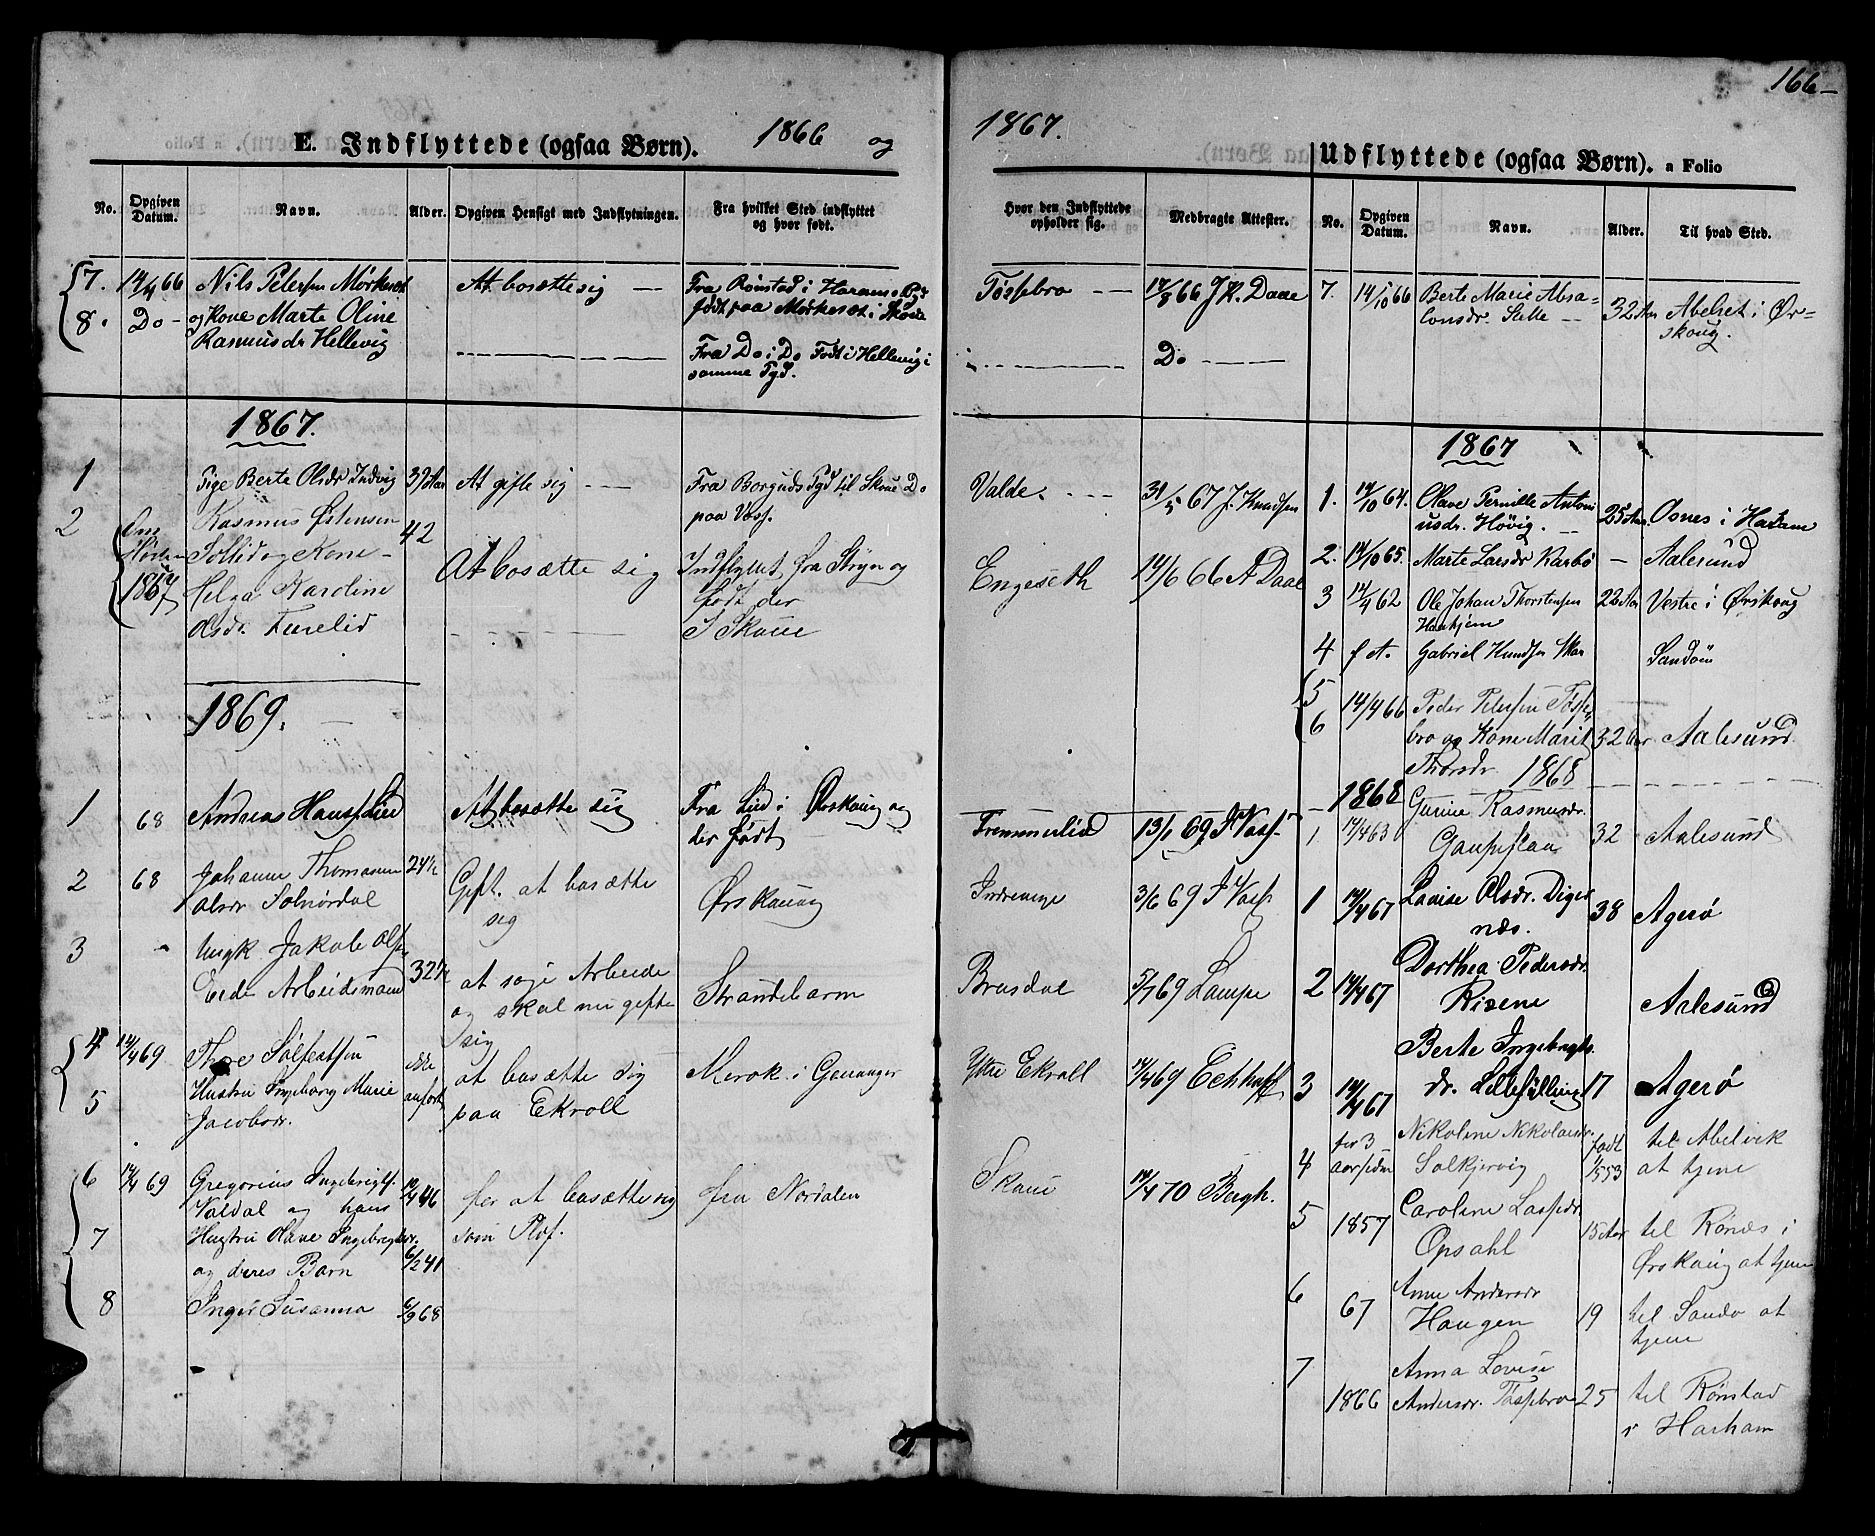 166
E. Indflyttede (ogsaa Børn). 1866 og
1867.
Udflyttede (ogsaa Børn). a Folio
No. Opgiven Datum. Navn. Alder. Opgiven Hensigt med Indflytningen. Fra hvilket Sted indflyttet og hvor født.
Hvor den Indflyttede opholder sig. Medbragte Attester. No. Opgiven Datum. Navn. Alder. Til hvad Sted.
7. 14/4 66 Nils Petersen Mørkeset At bosætte sig — Fra Rønstad i Harams
8. Do - og Kone Marte Oline født paa Mørkeset i Skoue
Rasmusdr Hellevig Fra Do i Do Født i Hellevig i
somme Pgd.
1867.
1 Pige Berte Olsdr Indvig 39 Aar At gifte sig Fra Borgunds Pgd til Skoue Do
paa Vass.
2 Rasmus Østensen 42
Sollid og Kone At bosætte sig Indflyttet fra Stryn og
1867 Helga Karoline født der
Olsdr. Furelid I Skoue
1869.
1 68 Andreas Hansen Lied At bosætte sig Fra Lied i Ørskoug og
der født
2 68 Johanne Thomasine 24½ Gift. at bosætte Ørskoug
Olsdr Solnørdal sig
3 - Ungk Jakob Olsen
Eide Arbeidsmand 32½ at søge Arbeide Strandebarm
og skal nu gifte
sig
4 14/4 69 Thore Sølfestsen ikke at bosætte sig Merok i Geiranger
5 Hustru Ingeborg Marie anført paa Ekroll
Jacobsdr.
6 14/4 69 Gregorius Ingebrigts. 10/4 46 for at bosætte sig fra Nordalen
Valdal og hans som Pløf.
7 Hustru Olave Ingebrigtsdr.
og deres Barn 6/2 41
8 Inger Susanna 6/9 68
Tøssebro — 14/8 66 J.K. Daae
Do
Valde. 31/5 67 J. Knudsen
Engeseth 14/6 66 A Daae
Fremmerlid 13/1 69 J Vass
Indrevige 3/6 69 J Vass
Brusdal 5/7 69 Lampe
Ytre Ekroll 14/4 69 Eckhoff
Skoue 14/4 70 Bergh.
7. 14/10 66 Berte Marie Absa-
lonsdr. Stette 32 Aar Abelset i Ør-
skoug.
1867
1. 14/10 64. Olave Pernille Antoni
usdr. Høvig. 25 Aar Osnes i Haram
2. 14/10 65. Marte Larsdr Karbø — Aalesund
3 14/4 62 Ole Johan Thorstensen 22 Aar Vestre i Ørskoug
4 f A. Gabriel Knudsen Skar Sandöü
5 14/4 66 Peder Petersen Tøsse
6 bro og Kone Marit 32 Aar Aalesund
Thorsdr. 1868
1868 Gurine Rasmusdr.
1. 14/4 63 Gaupeflaa 32 Aalesund
1 14/4 67 Lovise Olsdr. Diger
næs. 38 Agerø
2 14/4 67 Dorthea Pedersdr.
Risene Aalesund
Berte Ingebrigts
3 14/4 67 dr. Lillefylling 17 Agerø
4 for 3 Nikoline Nikolaisdr. født til Abelvik
aar siden Solkjervig 1/5 53 at tjene
5 1857 Caroline Lassedr.
Opsahl 15 Aar til Rønæs i
Ørskoug at tjene
6 67 Anne Andersdr
Haugen 19 til Sandø at
tjene
7 Anna Lovise
1866 Andersdr. Tøssebro 25 til Rønstad
i Harham